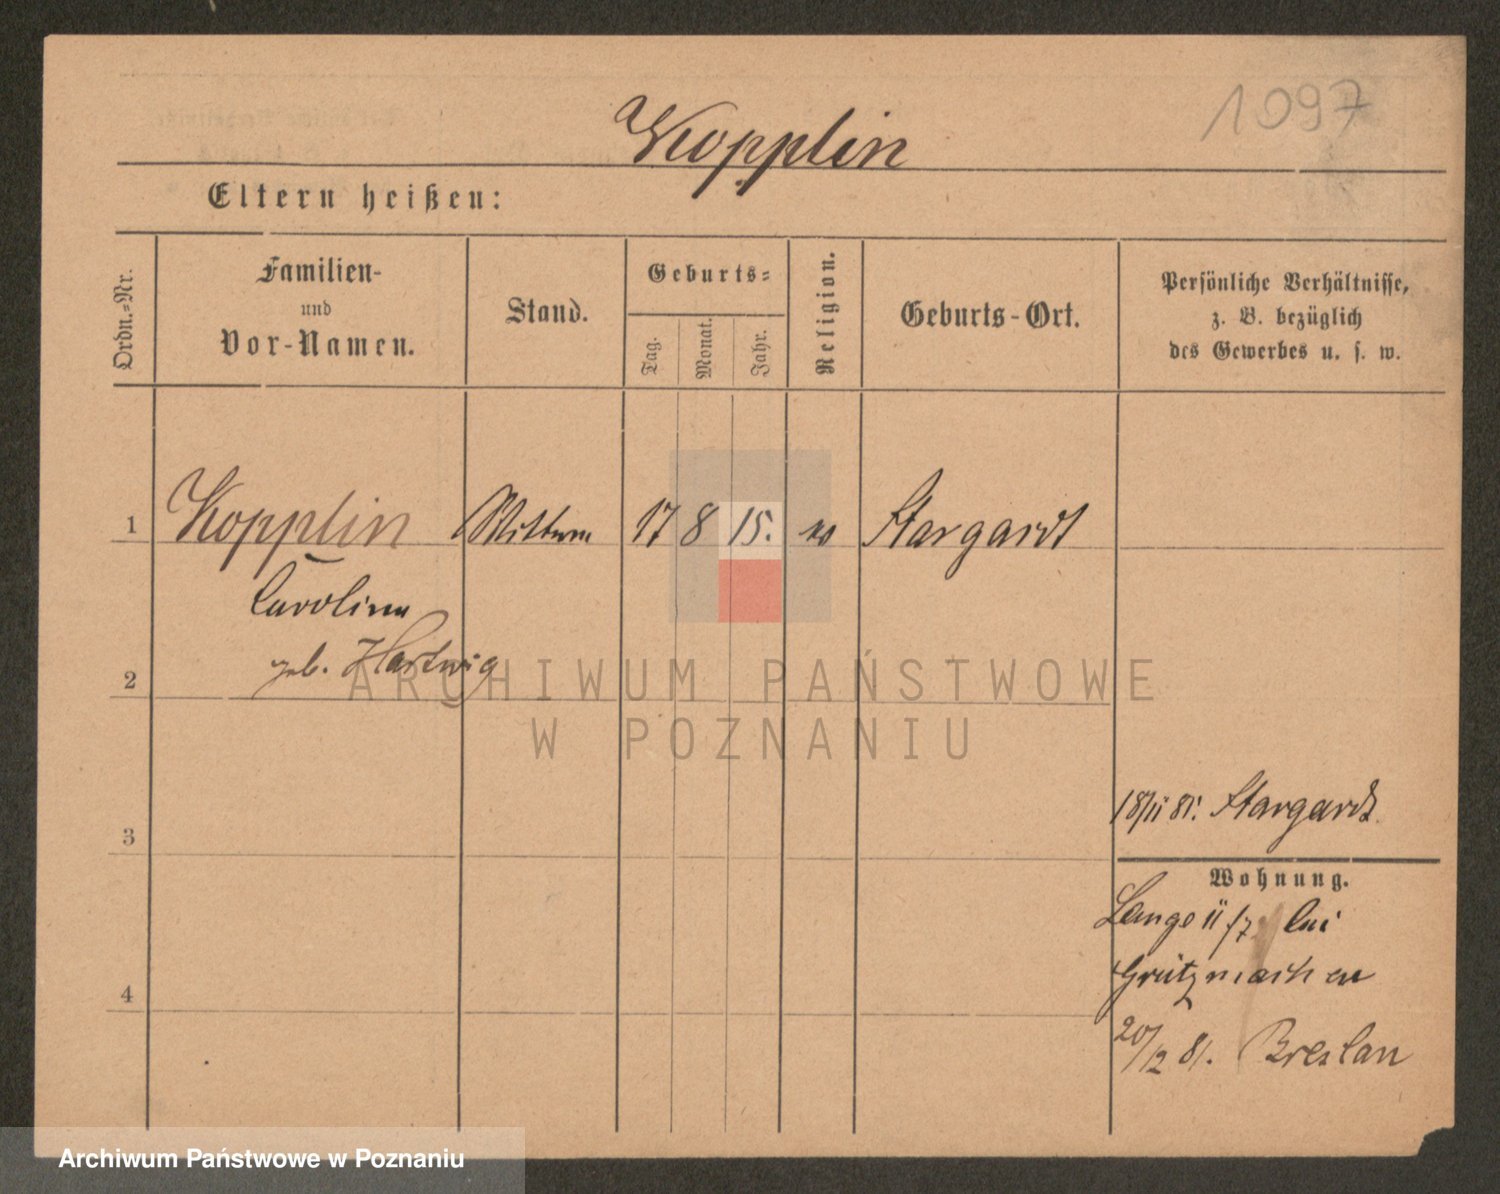 1097
Kopplin
Eltern heißen:
Ordn.-Nr.
Familien-
und
Vor-Namen.
Stand.
Geburts-
Tag.
Monat.
Jahr.
Religion.
Geburts-Ort.
Persönliche Verhältnisse,
z. B. bezüglich
des Gewerbes u. s. w.
1 Kopplin Wittwe 17 8 15. Stargardt
Caroline
geb. Hartwig
2
ARCHIWUM PAŃSTWOWE
W POZNANIU
18/11 81. Stargardt
3
Wohnung.
Lange 11 bei
Grützmacher
4
20/12 81. Breslau
Archiwum Państwowe w Poznaniu